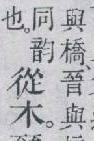 與橋、晉與
同韵從木。
也。